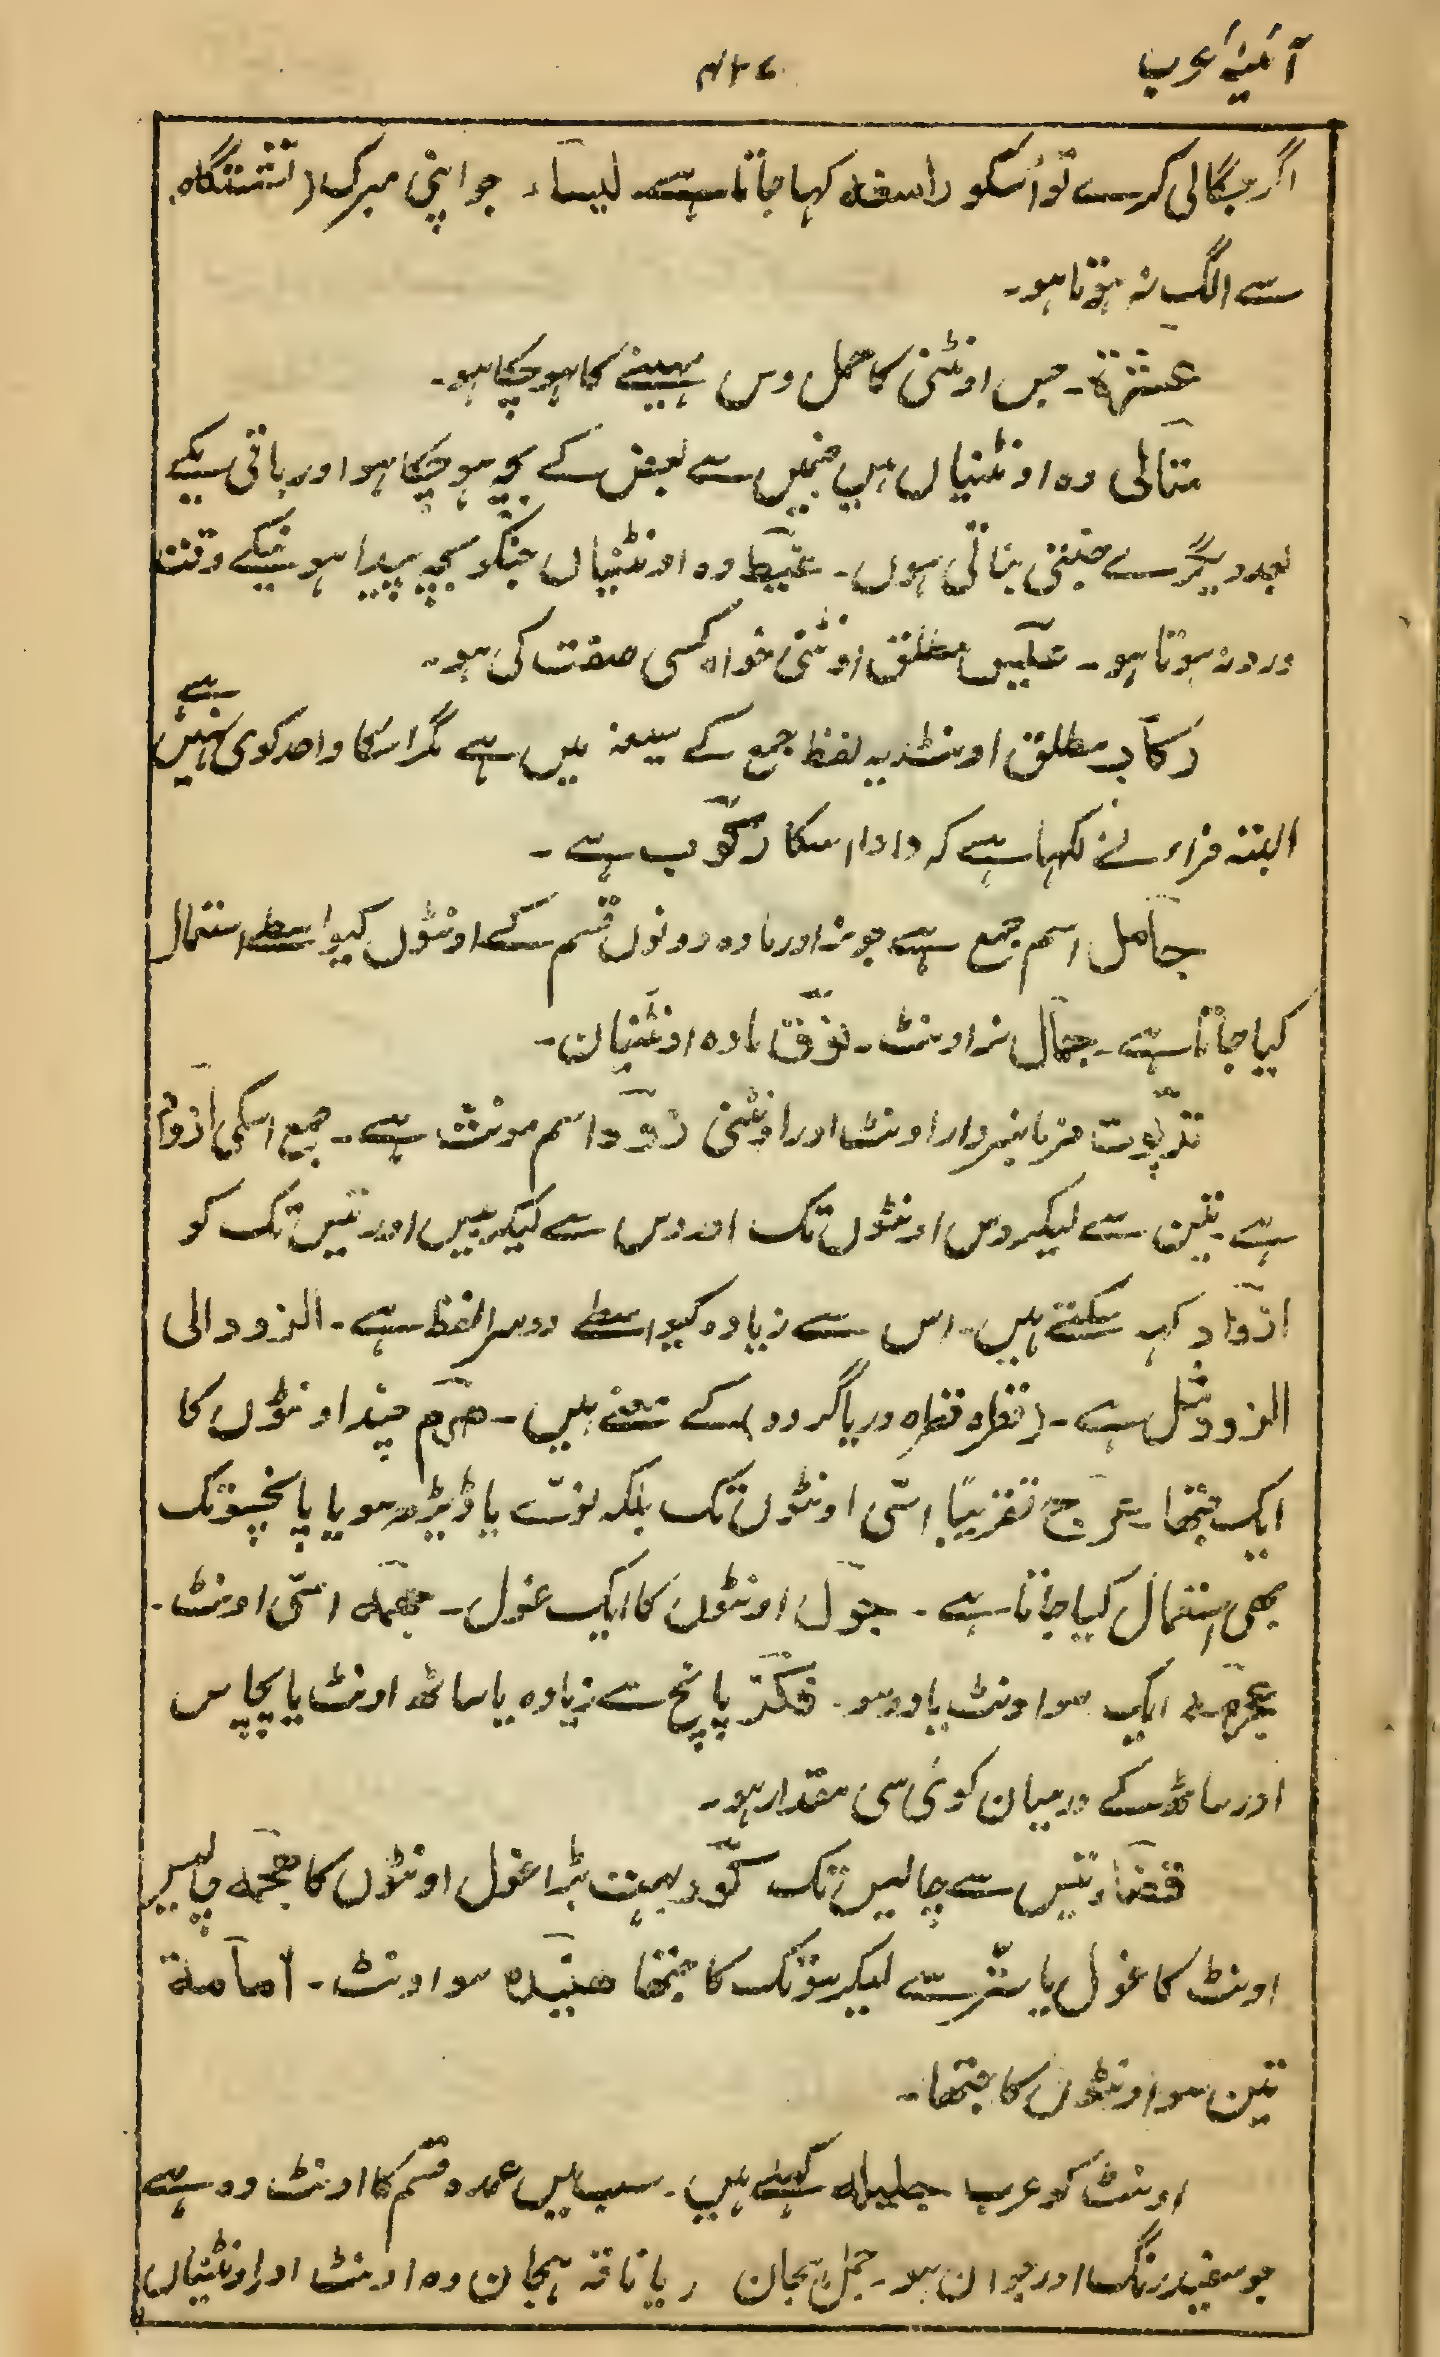 آئینۂ عرب
۴۲۷
اگر جگالی کرے تو اُسکو راسفہ کہا جاتا ہے۔ لیساء۔ جو اپنی مبرک (نشستگاہ)
سے الگ نہ ہوتا ہو۔
عشرۃ۔ جس اونٹنی کا حمل دس مہینے کا ہوچکا ہو۔
متالی وہ اونٹنیاں ہیں جنمیں سے بعض کے بچہ ہوچکا ہو اور باقی یکے
بعد دیگرے جنتی جاتی ہوں۔ غیط وہ اونٹنیاں جنکو بچہ پیدا ہونیکے وقت
درد نہ ہوتا ہو۔ عیس مطلق اونٹنی خواہ کسی صفت کی ہو۔
رکاب مطلق اونٹ یہ لفظ جمع کے صیغہ میں ہے مگر اسکا واحد کوی نہیں ہے
البتہ فراء نے لکہا ہے کہ واحد اسکا رکوب ہے۔
جامل اسم جمع ہے جو نر اور مادہ دونوں قسم کے اونٹوں کیواسطے استمال
کیا جاتا ہے۔ جمال نر اونٹ۔ نوق مادہ اونٹنیان۔
تربوت فرمانبردار اونٹ اور اونٹنی ذود اسم مونث ہے۔ جمع اسکی اذواد
ہے تین سے لیکر دس اونٹوں تک اور دس سے لیکر بیس اور تیس تک کو
اذواد کہہ سکتے ہیں۔ اس سے زیادہ کیواسطے دوسرا لفظ ہے۔ الذود الی
الذود مثل ہے۔ (قطرہ قطرہ دریا گردد) کے معنے ہیں۔ صرم چند اونٹوں کا
ایک جتھا۔ عرج تقریباً اسّی اونٹوں تک بلکہ نوے یا ڈیڑھ سو یا پانچسو تک
بھی استمال کیا جاتا ہے۔ جول اونٹوں کا ایک غول۔ جھمہ اسّی اونٹ۔
عجرمہ ایک سو اونٹ یا دوسو۔ عکر پانچ سے زیادہ یا ساٹھ اونٹ یا پچاس
اور ساٹھ کے درمیان کوئی سی مقدار ہو۔
قضاء تیس سے چالیس تک کور بہت بڑا غول اونٹوں کا ھجمہ چالیس
اونٹ کا غول یا ستّر سے لیکر سو تک کا جتھا ھنیدہ سو اونٹ۔ امامۃ
تین سو اونٹوں کا جتھا۔
اونٹ کو عرب جلیلہ کہتے ہیں۔ سب میں عمدہ قسم کا اونٹ وہ ہے
جو سفید رنگ اور جوان ہو۔ جمل ہجان ریا ناقہ ہجان وہ اونٹ اور اونٹنیاں